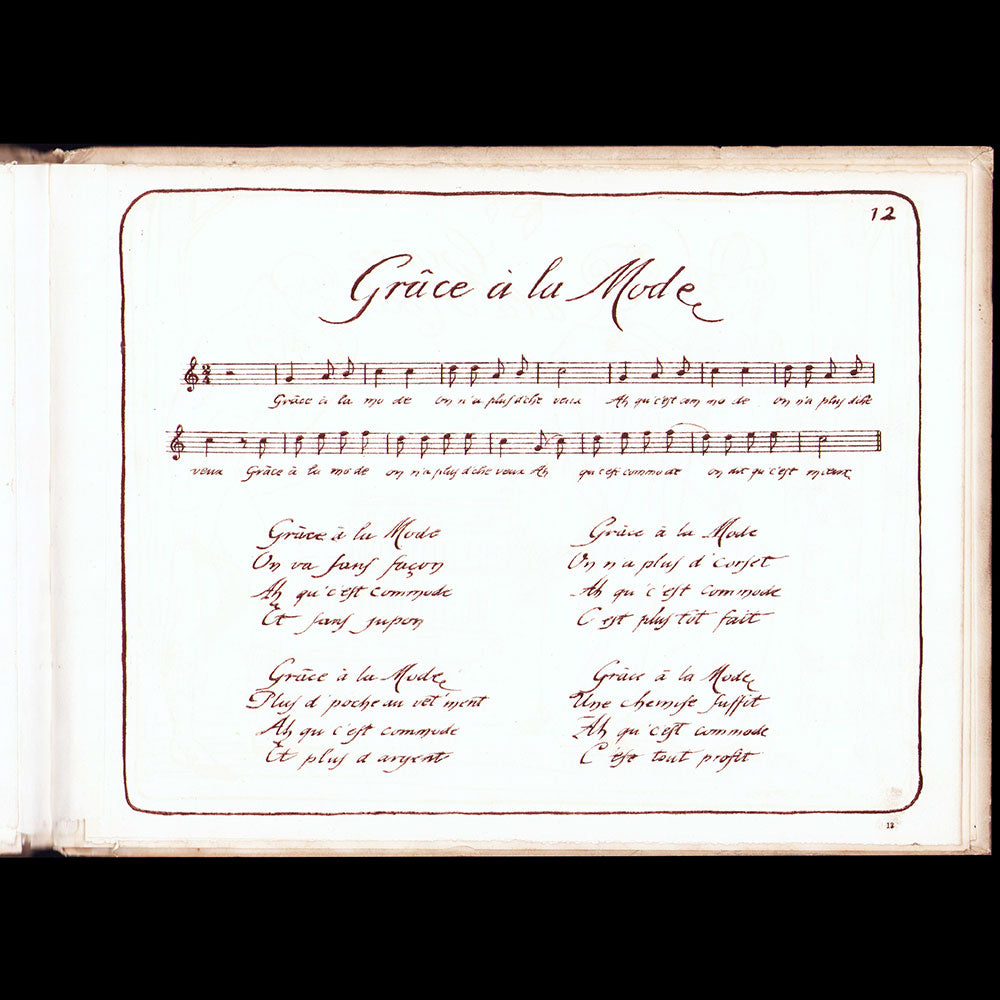 12
Grâce à la Mode
Grâce à la mo de on n'a plus d'che veux Ah qu'c'est com mo de on n'a plus d'che
veux Grâce à la mo de on n'a plus d'che veux Ah qu'c'est commode on dit qu'c'est mieux
Grâce à la Mode
On va sans façon
Ah qu'c'est commode
Et sans jupon
Grâce à la Mode
On n'a plus d'corset
Ah qu'c'est commode
C'est plus tot fait
Grâce à la Mode
Plus d'poche au vet'ment
Ah qu'c'est commode
Et plus d'argent
Grâce à la Mode
Une chemise suffit
Ah qu'c'est commode
C'est tout profit